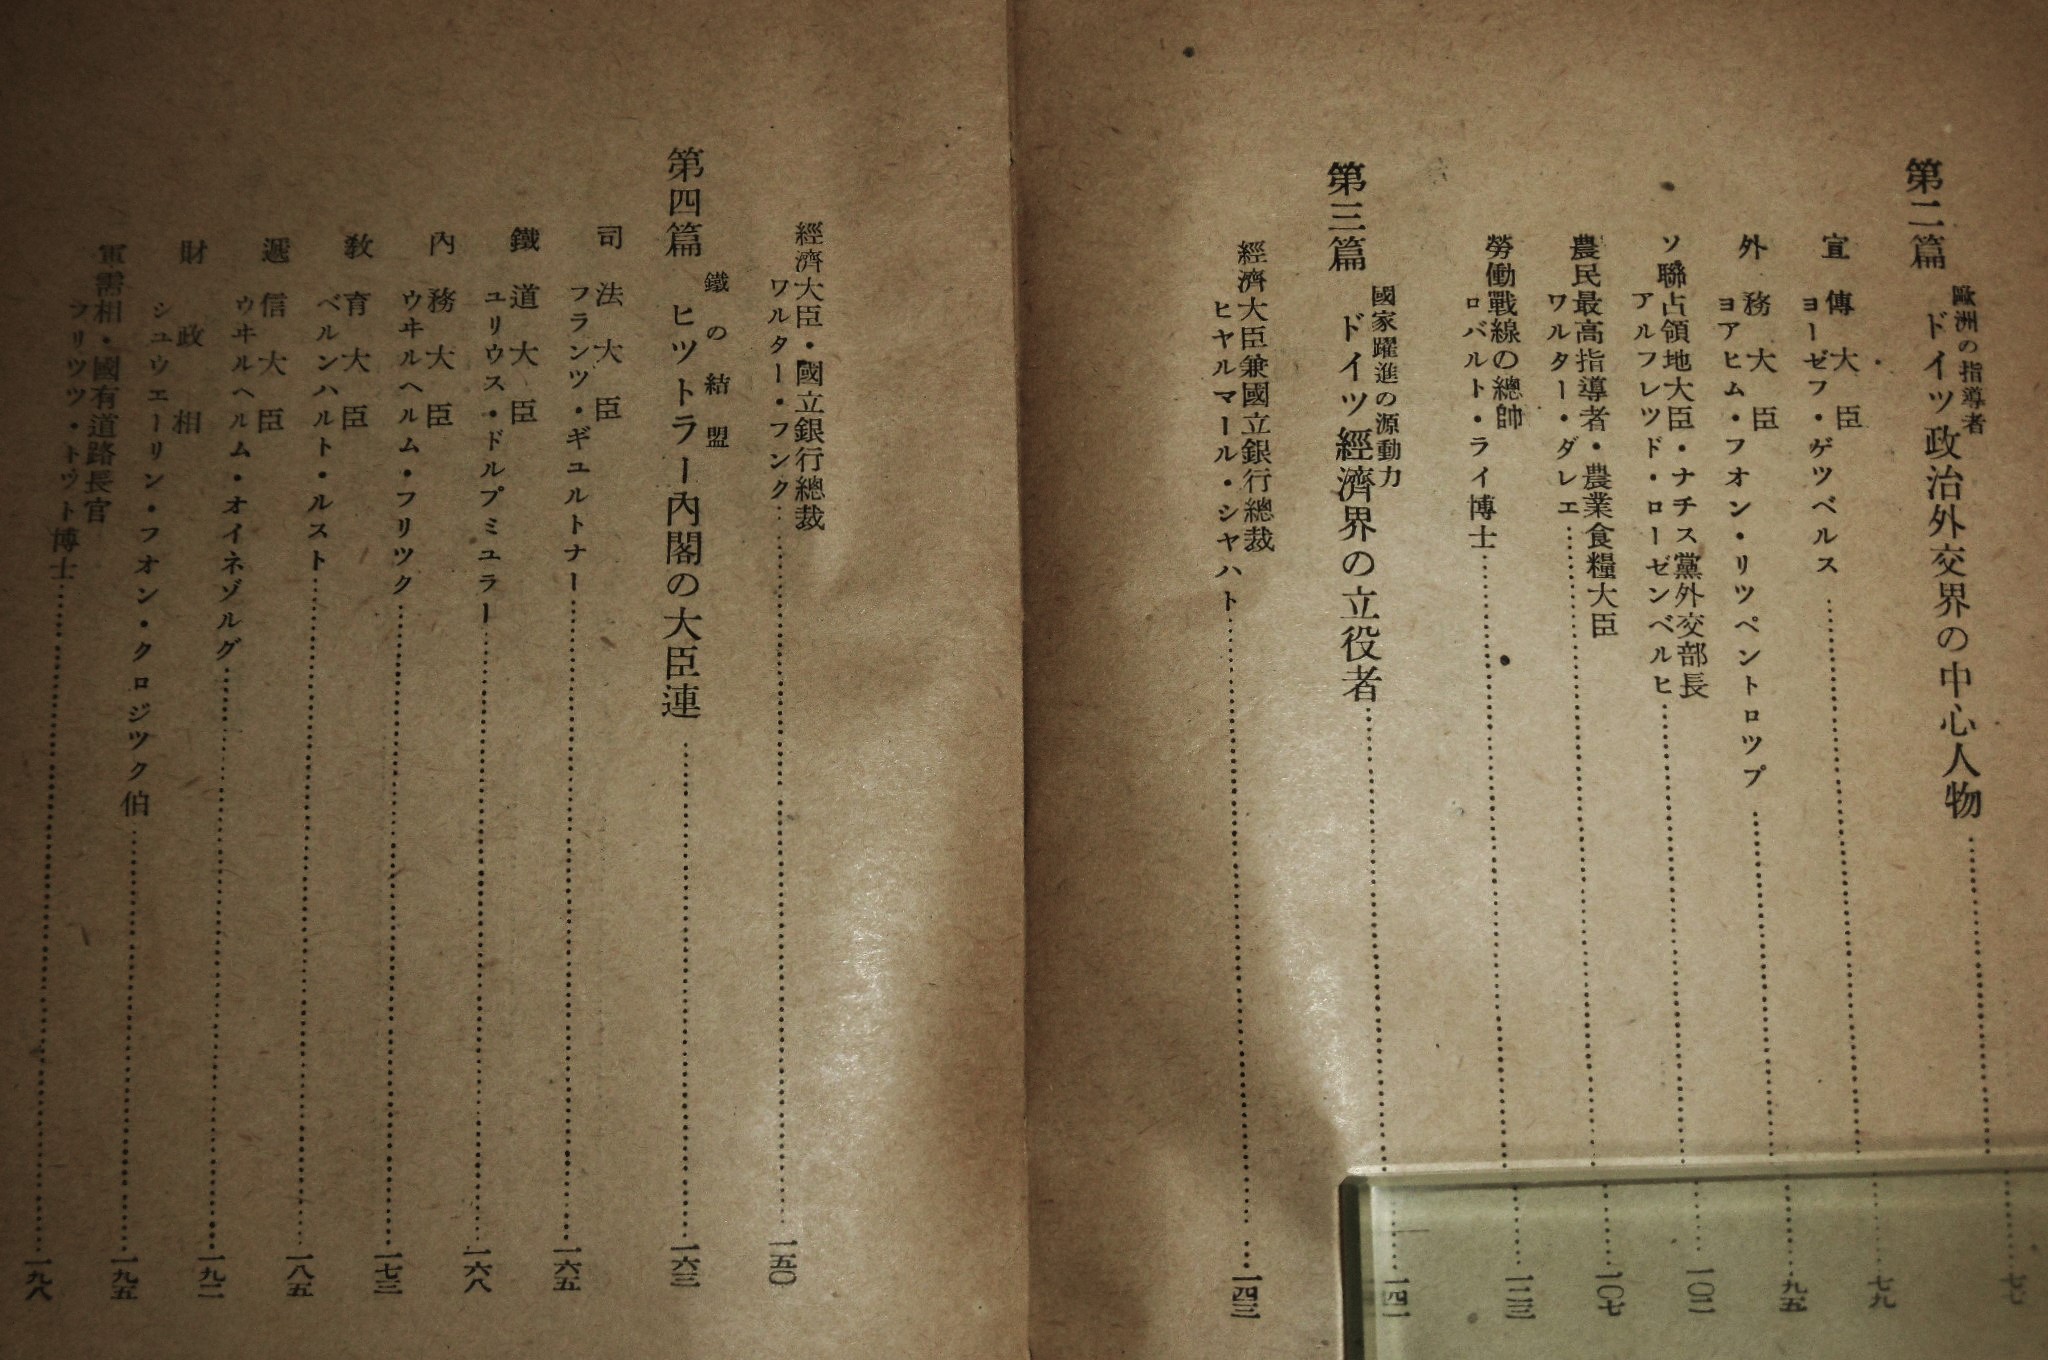 第二篇
歐洲の指導者
ドイツ政治外交界の中心人物……七七
宣傳大臣
ヨーゼフ・ゲツベルス……七九
外務大臣
ヨアヒム・フオン・リツペントロツプ……九五
ソ聯占領地大臣・ナチス黨外交部長
アルフレツド・ローゼンベルヒ……一〇二
農民最高指導者・農業食糧大臣
ワルター・ダレエ……一〇七
勞働戰線の總帥
ロバルト・ライ博士……一二三
第三篇
國家躍進の源動力
ドイツ經濟界の立役者……一四一
經濟大臣兼國立銀行總裁
ヒヤルマール・シヤハト……一四三
經濟大臣・國立銀行總裁
ワルター・フンク……一五〇
第四篇
鐵の結盟
ヒツトラー內閣の大臣連……一六三
司法大臣
フランツ・ギユルトナー……一六五
鐵道大臣
ユリウス・ドルプミユラー……一六八
內務大臣
ウヰルヘルム・フリツク……一七三
敎育大臣
ベルンハルト・ルスト……一八五
遞信大臣
ウヰルヘルム・オイネゾルグ……一九一
財政相
シユウエーリン・フオン・クロジツク伯……一九五
軍需相・國有道路長官
フリツツ・トウト博士……一九八